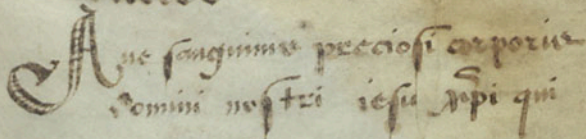 Aue sanguinis preciosi corporis
domini nostri iesu xpi qui